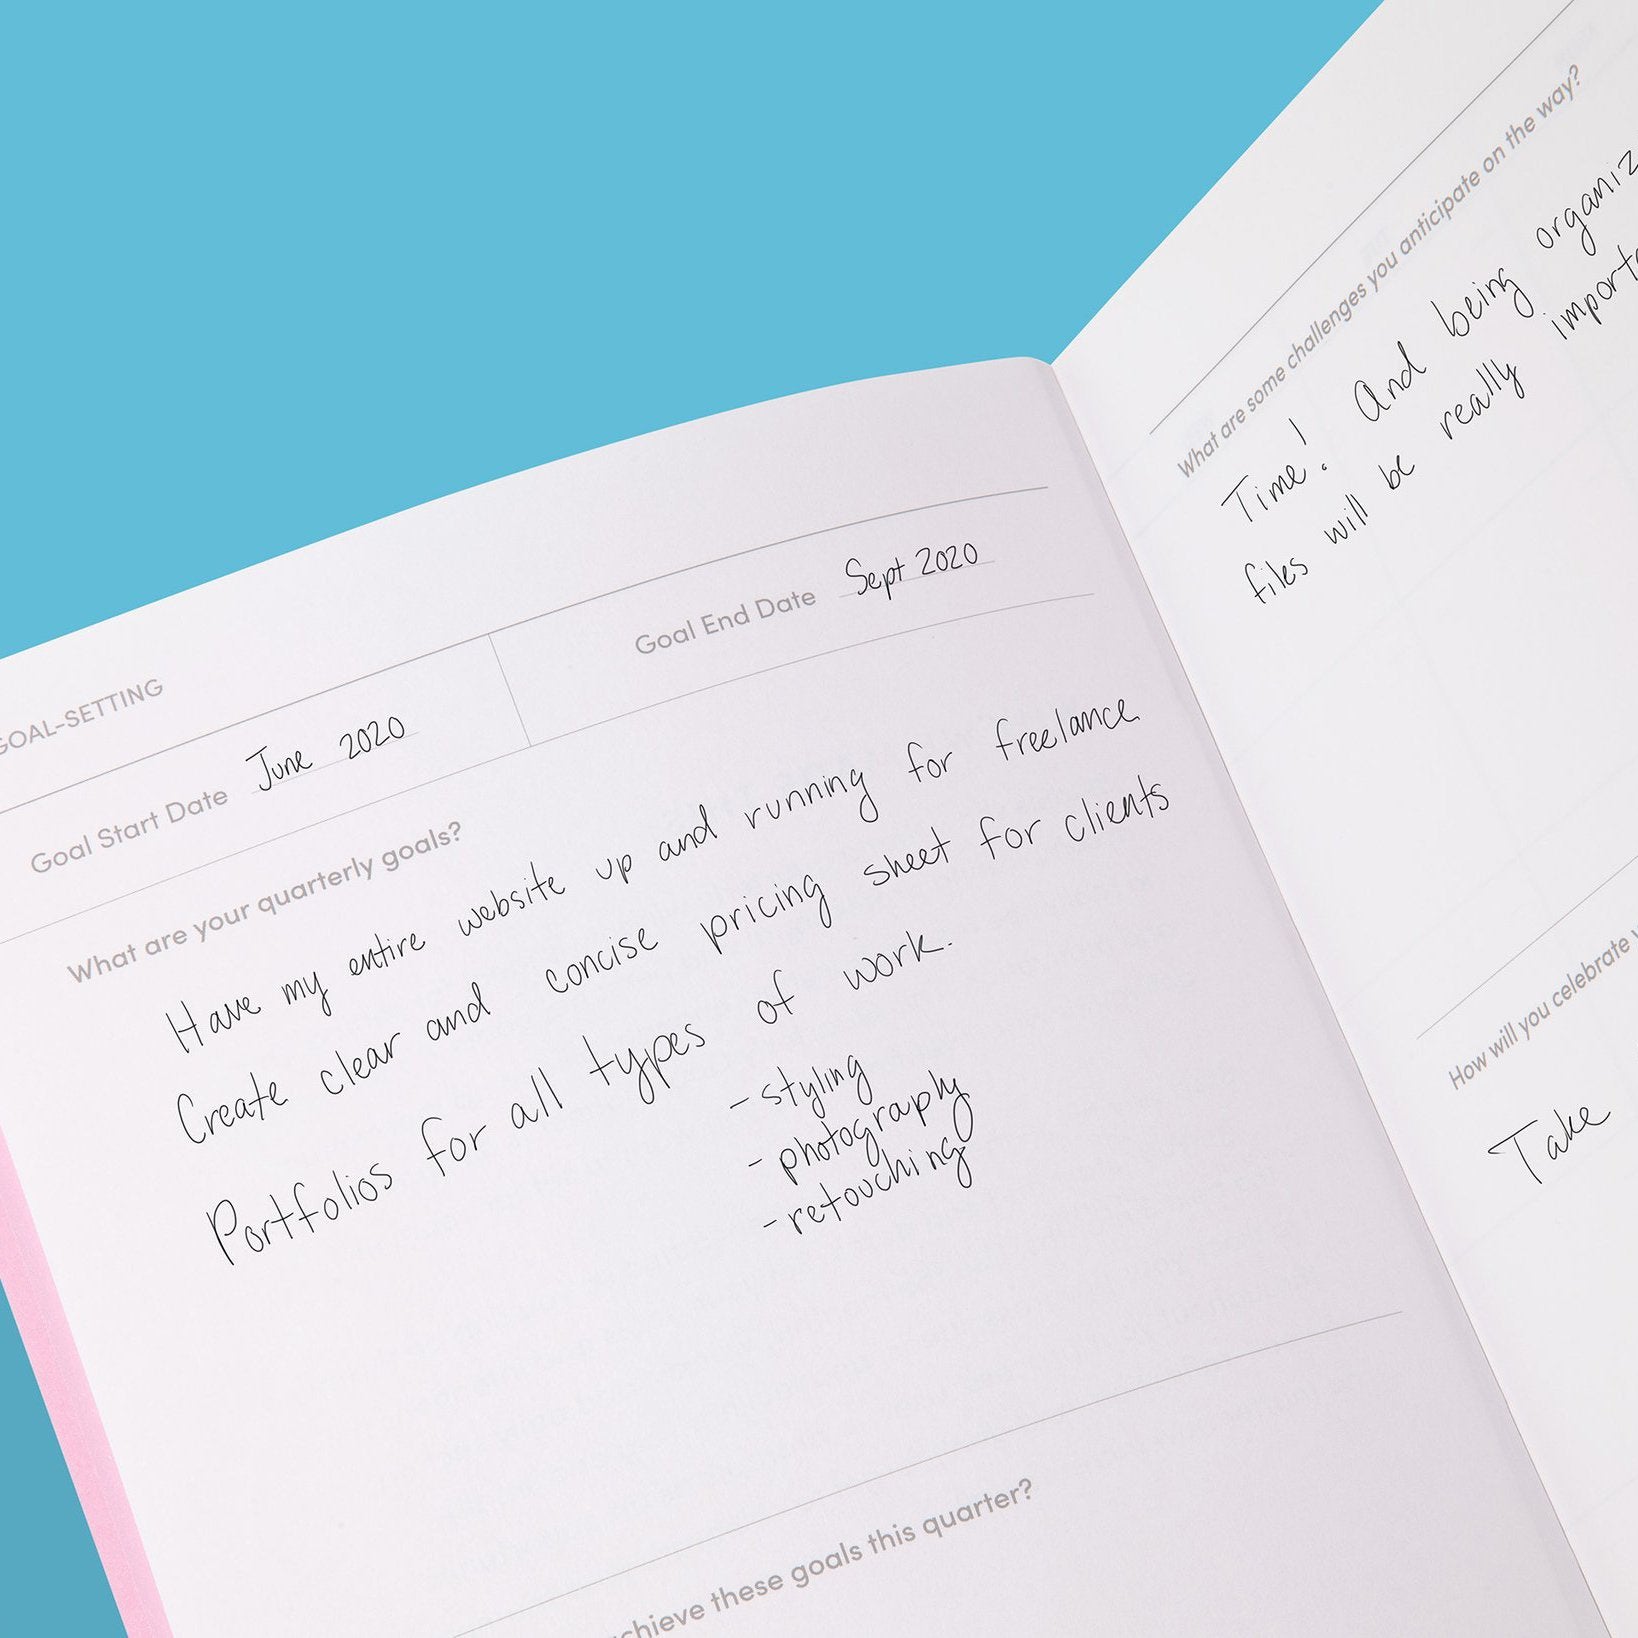 GOAL-SETTING
Goal Start Date June 2020
Goal End Date Sept 2020
What are your quarterly goals?
Have my entire website up and running for freelance
Create clear and concise pricing sheet for clients
Portfolios for all types of work.
- styling
- photography
- retouching
achieve these goals this quarter?
What are some challenges you anticipate on the way?
Time! And being
files will be really
How will you celebrate
Take